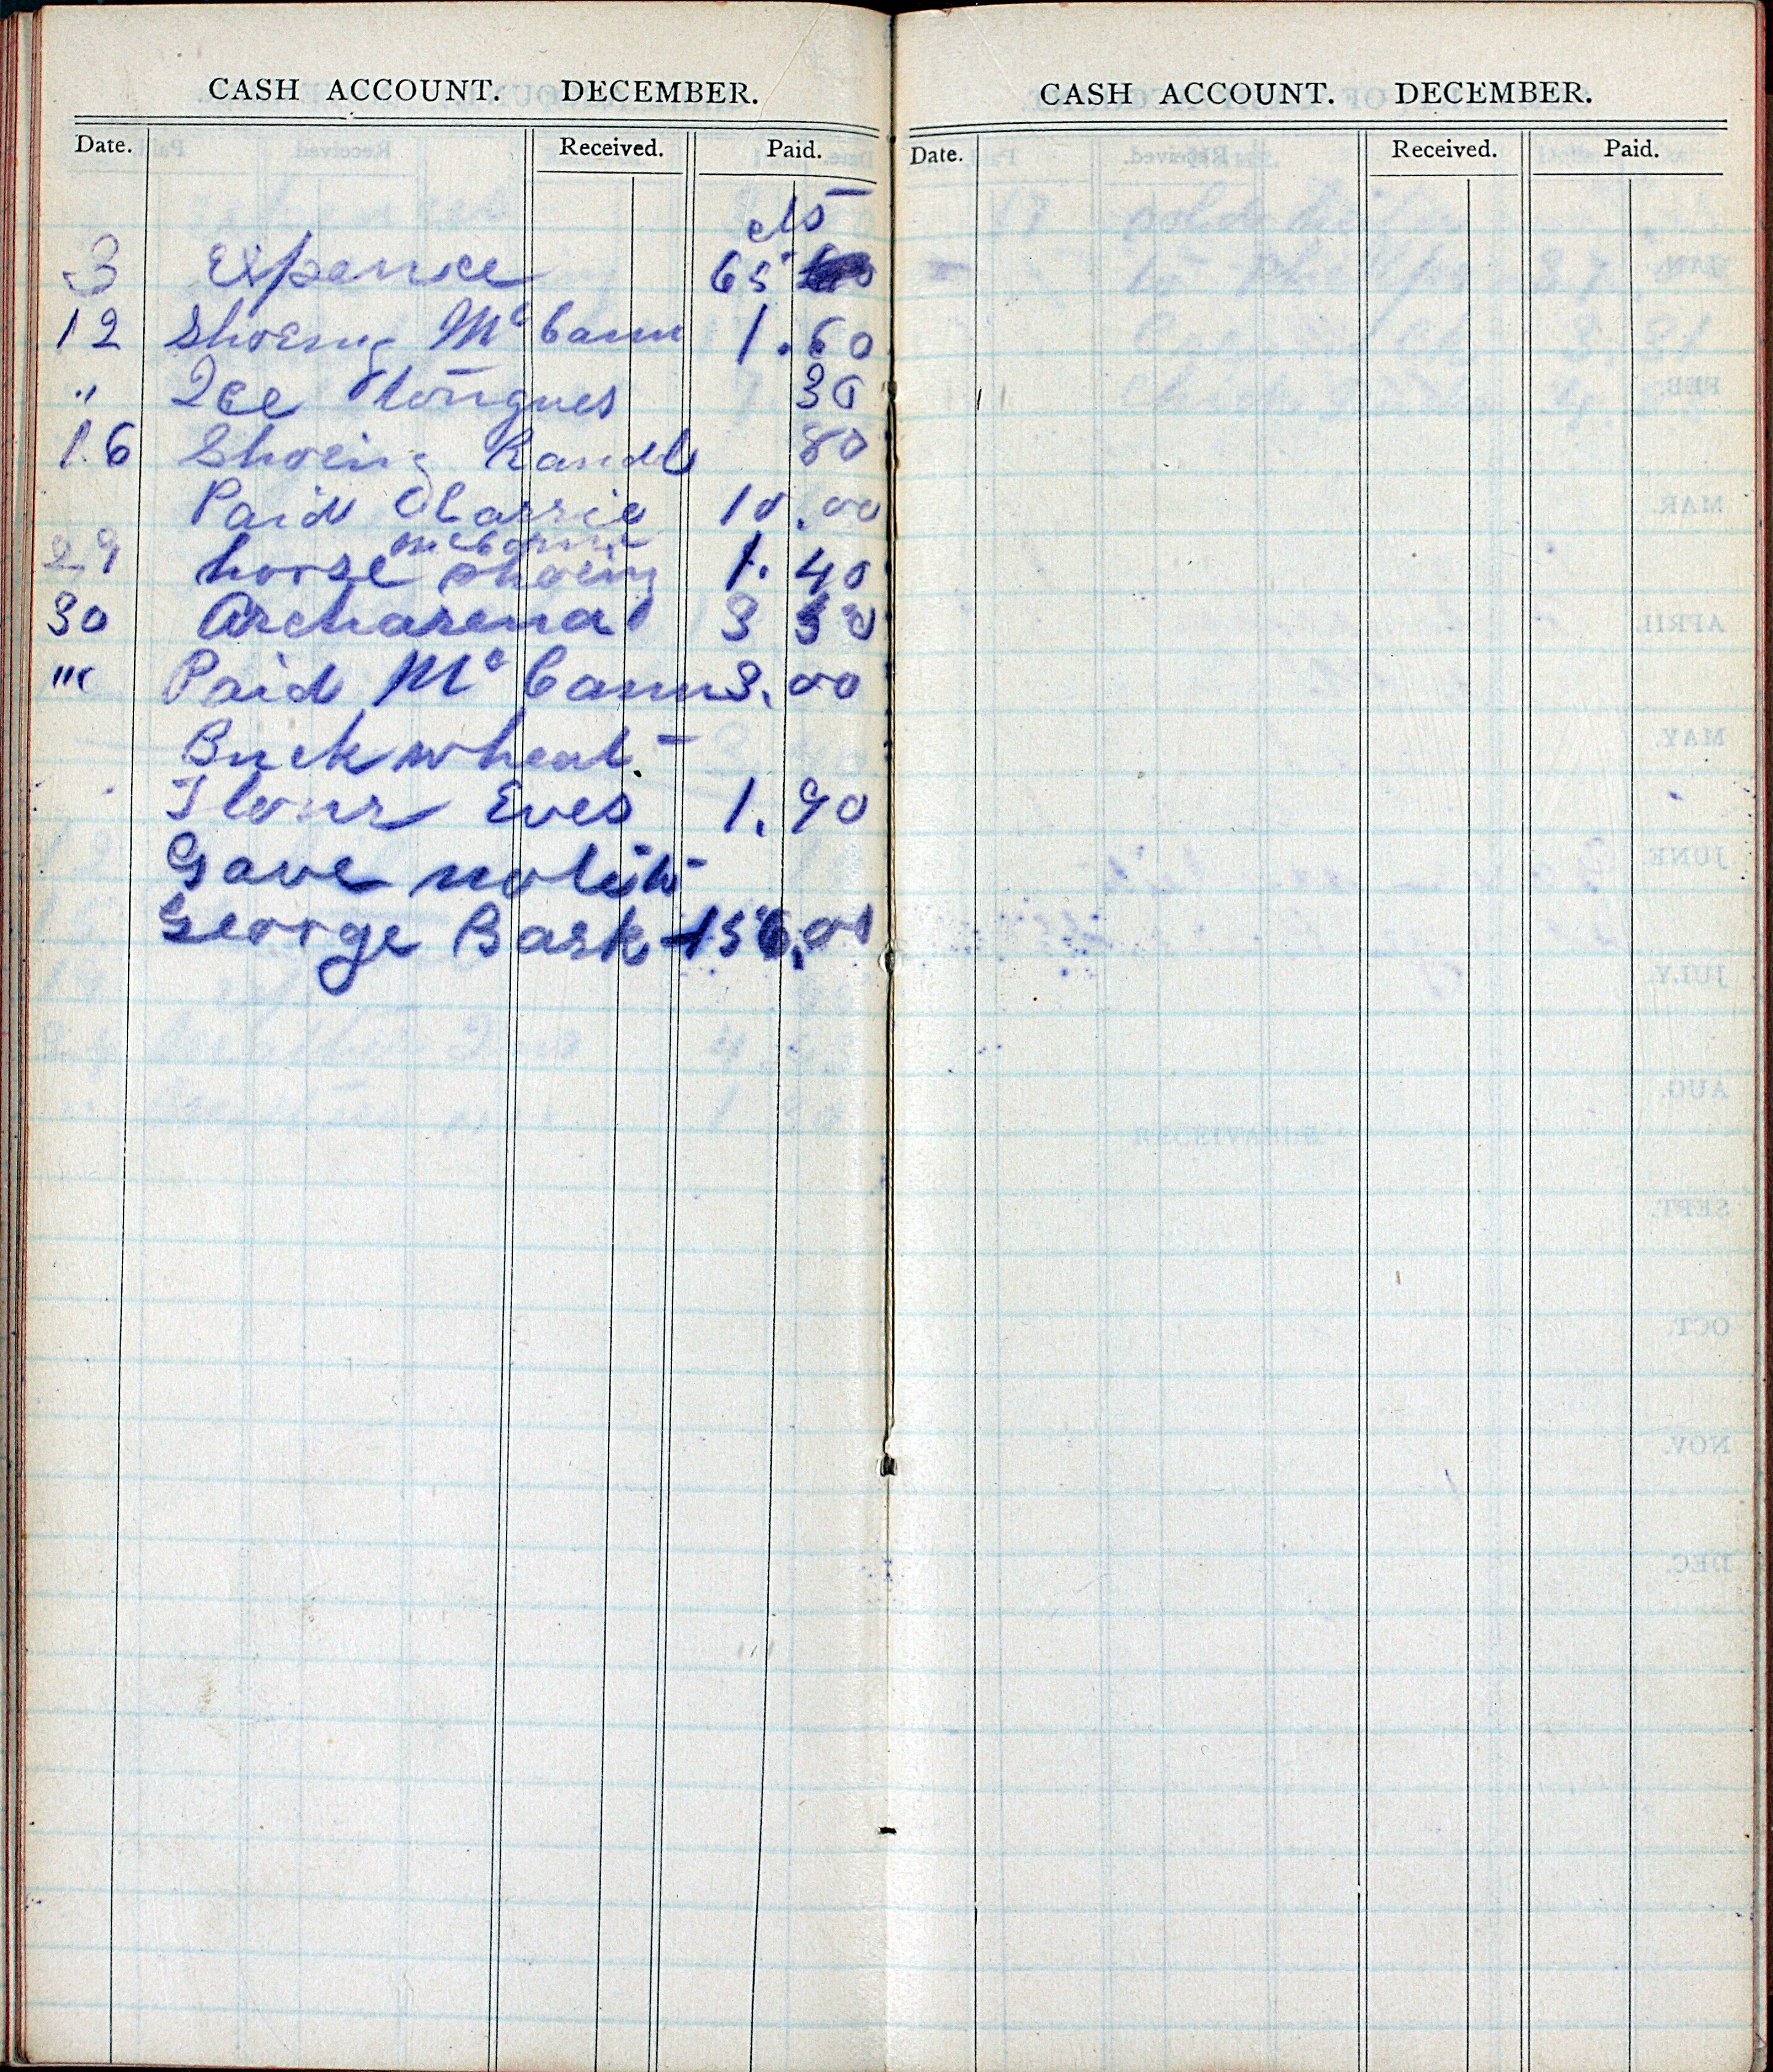 CASH ACCOUNT. DECEMBER.
Date. Received. Paid.
cts
3 Expence 65
12 Shoeing Mc Cann 1.60
" Ice Tongues 30
16 Shoeing Randl 80
Paid Clarrie 10.00
McCann
29 horse shoeing 1.40
30 Archarena 3 50
" Paid Mc Cann 3.00
Buckwheat
Flour Eves 1.90
Gave note to
George Bask 156.00
CASH ACCOUNT. DECEMBER.
Date. Received. Paid.